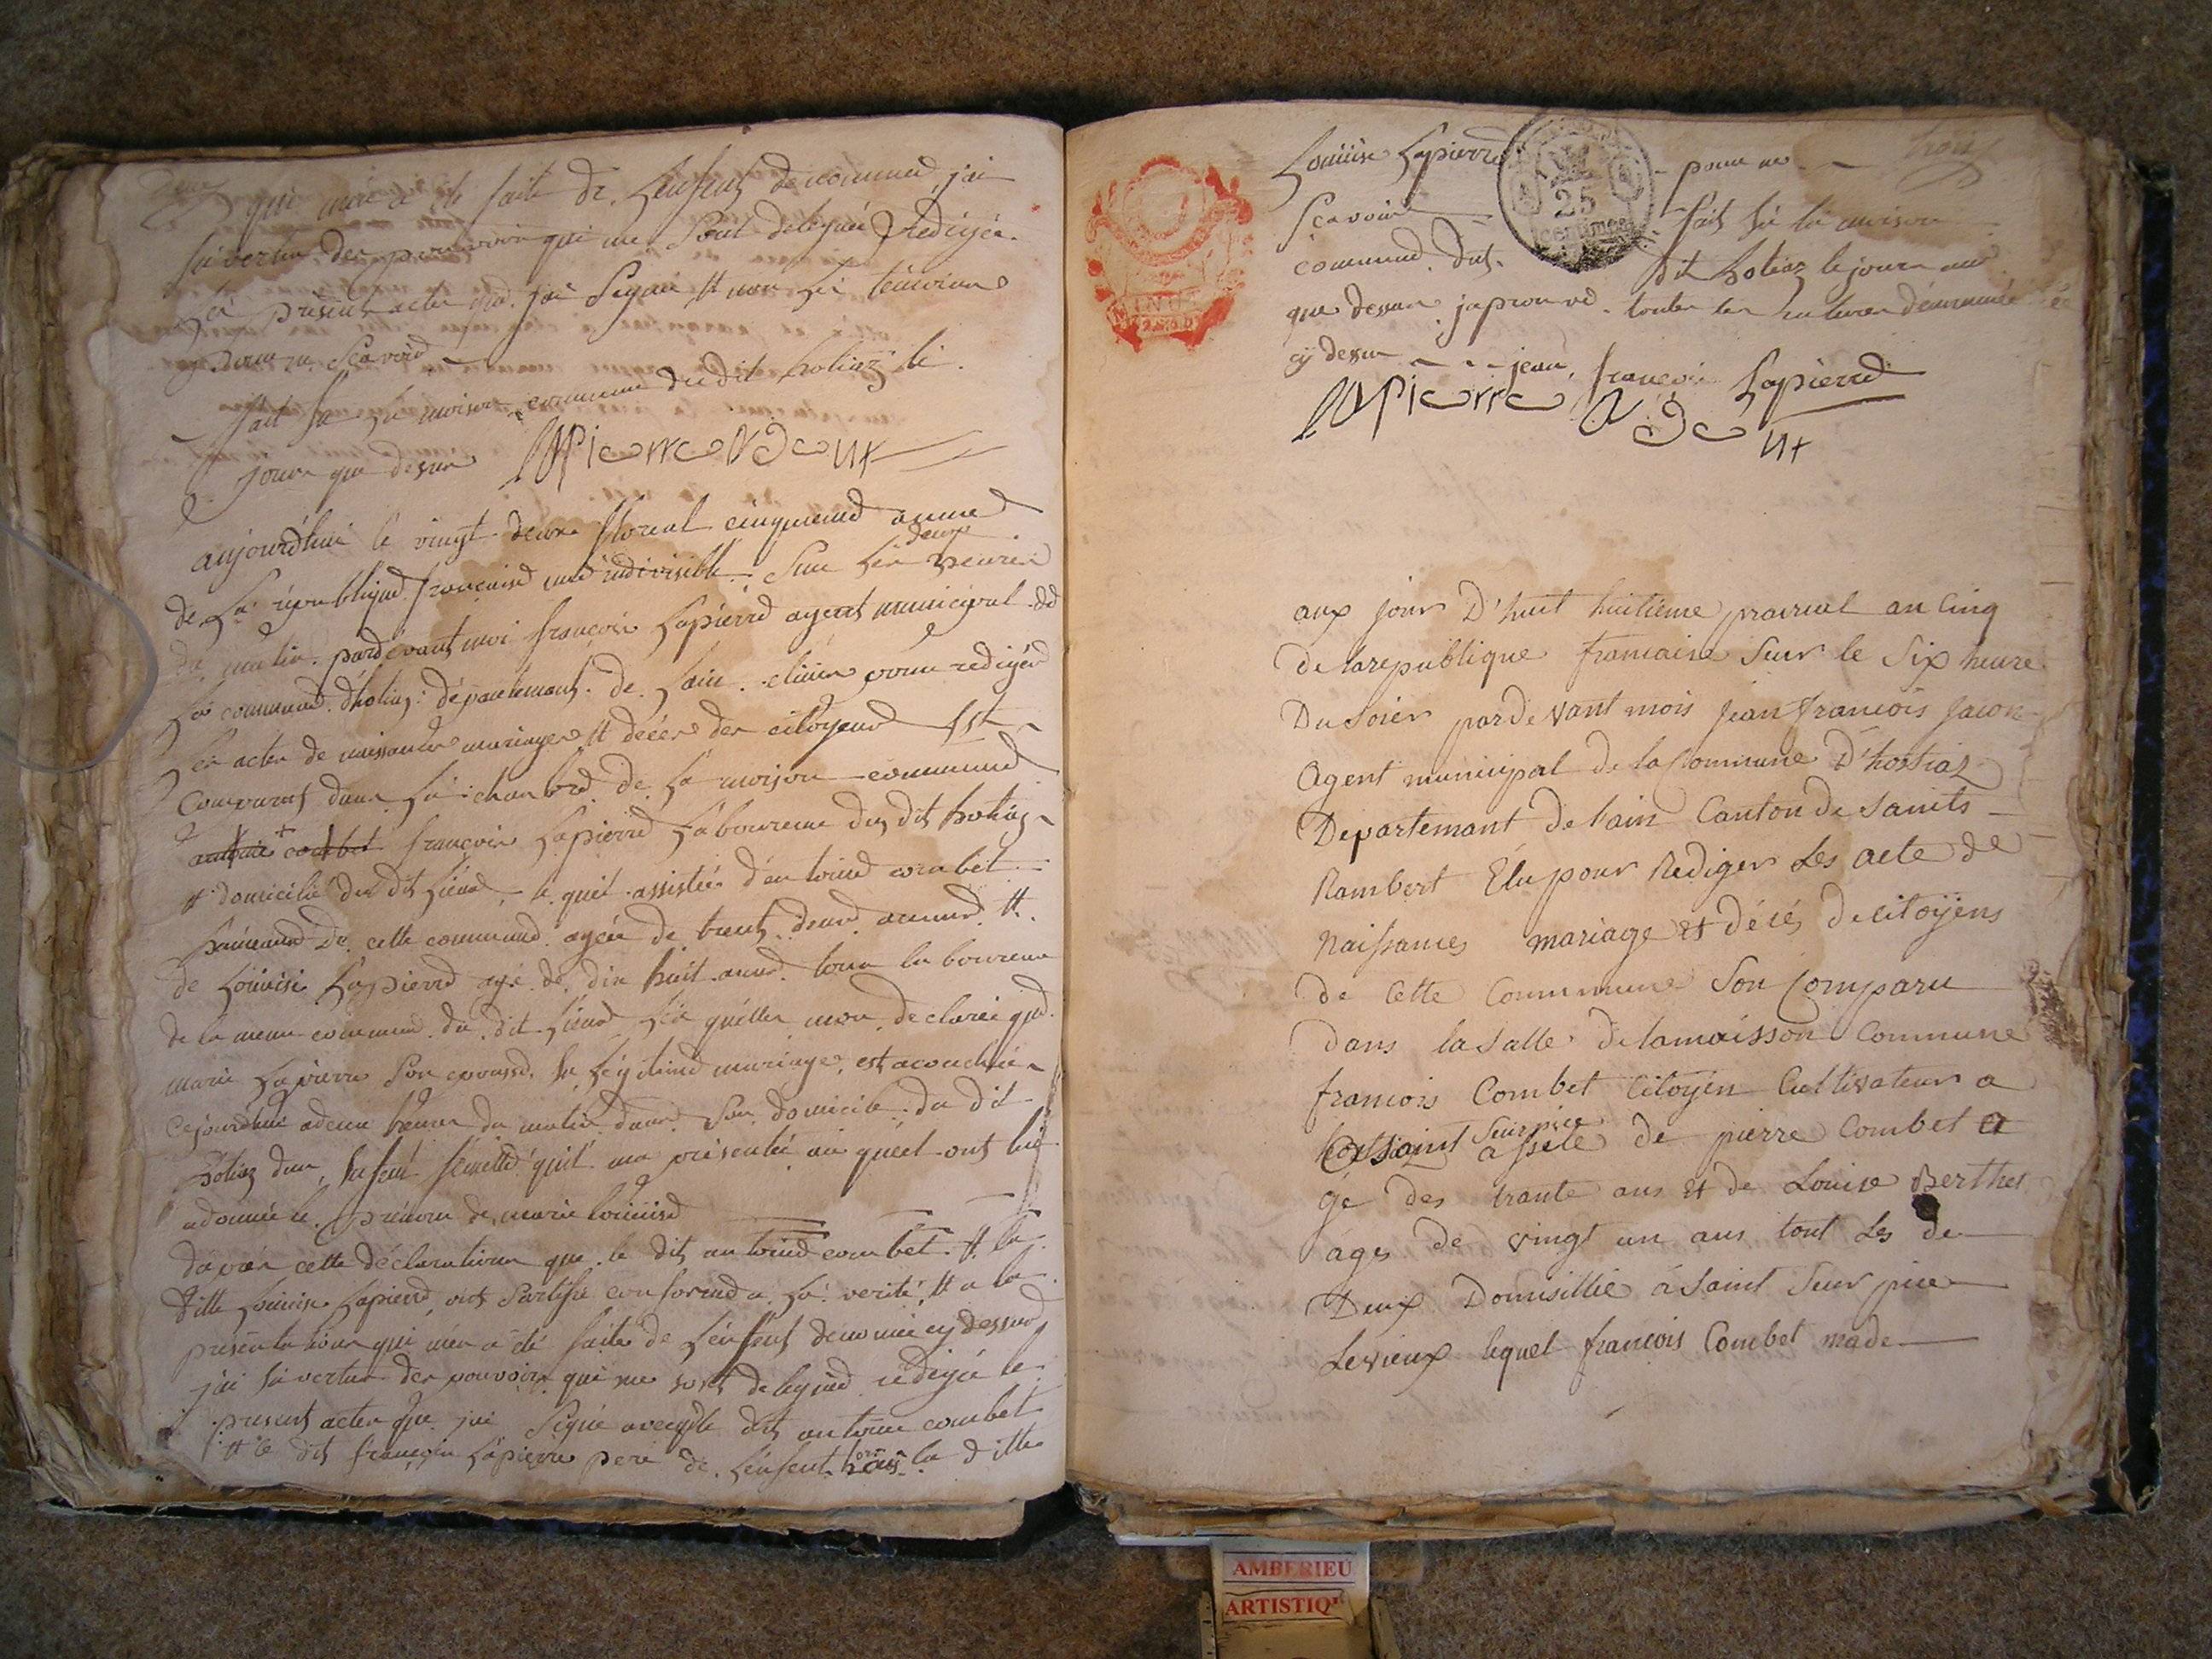 qui m'en a été faite de L'enfent denommé, j'ai
en vertu des pouvoirs qui me sont delegués Redigée
Le présent acte que j'ai signé et non Les témoins
pour ne Sçavoir
fait en La maison commune du dit hotiaz le
jour que dessus
lapierre adent
aujourd'hui le vingt deux floreal cinquieme année
de La république françaisse une indivisible Sur Les deux heures
du matin pardevant moi françois Lapierre agent municipal de
La commune d'hotiaz département de Lain elüin pour redigér
Les actes de naissances mariages et décès des citoyens est
comparut dans La chambre de La maison commune
antoine combet françois Lapierre Laboureur du dit hotiaz
et domicilié du dit Lieux le quel assistée d'antoine combet
de cette commune agée de trente deux années et
de Louise Lapierre agé de dix huit années tous laboureur
de la meme commune du dit Lieux Les quelles mon declarée que
marie Lapierre Son epousse en Légitime mariage est acouchée
cejourdhui a deux heures du matin dans Son domicile du dit
hotiaz d'un enfent femelle qu'il ma présentée au quel ont lui
a donnée le prénom de marie Louise
d'après cette déclaration que le dit antoine combet et la
ditte Louise Lapierre ont Sertifié conforme a La verité et a la
présentation qui m'en a été faite de L'enfent denommée cy dessus
j'ai en vertu des pouvoirs qui me sont delegués redigée le
present acte que j'ai Signé avecque le dit antoine combet
et le dit françois Lapierre pere de L'enfent non la ditte
Louise Lapierre pour ne
Sçavoir fait en la maison
commune dut dit hotiaz le jour
que dessus japrouve toutes les
cy dessus jean françois Lapierre
lapierre adent
25
centimes
aux jour D'huit huitieme prairial an Cinq
De la republique francaise Sur le Six heure
Du Soier par devant mois jean francois jacon
Agent municipal de la Commune D'hostiaz
Departemant de l'ain Canton de Saints
Rambert Elu pour Rediger Les acte de
Naissances mariage et décés de Citoÿens
de Cette Commmune Son Comparu
Dans la Salle De lamaisson Commune
francois Combet Citoÿen Cultivateur a
Saint Surpice assite de pierre Combet a
gé des trante ans et de Louise Berthet
ages de vingt un ans tout Les de
Deux Domisillie a Saint Surpice
Levieux lequel francois Combet made
AMBERIEU
ARTISTIQ